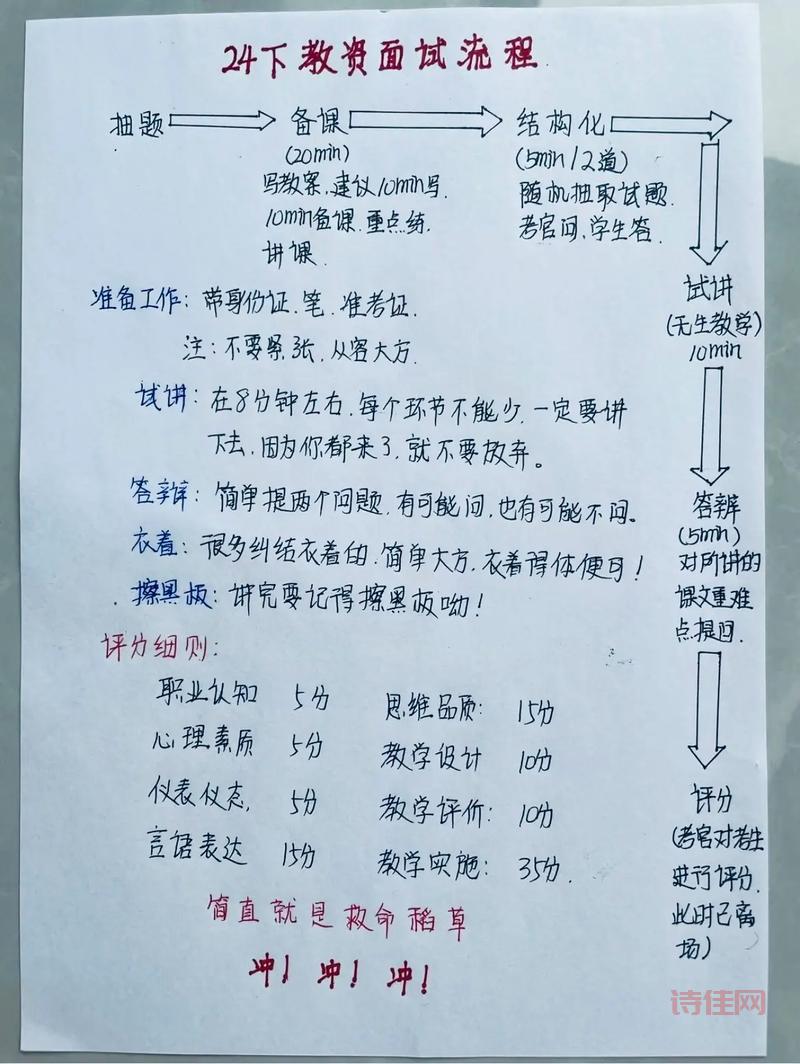 24下教资面试流程
抽题 备课 结构化
(20min) (5min/2道)
写教案,建议10min写. 随机抽取试题.
10min备课.重点练. 考官问、学生答.
讲课.
试讲
(无生教学)
10min
准备工作: 带身份证、笔、准考证.
注: 不要紧张,从容大方.
试讲: 在8分钟左右,每个环节不能少,一定要讲
下去,因为你都来了,就不要放弃。
答辩: 简单提两个问题,有可能问,也有可能不问。
衣着: 很多纠结衣着的,简单大方,衣着得体便可!
擦黑板: 讲完要记得擦黑板呦!
答辩
(5min)
对所讲的
课文重难
点提问.
评分细则:
职业认知 5分 思维品质: 15分
心理素质 5分 教学设计 10分
仪表仪态, 5分 教学评价: 10分
言语表达 15分 教学实施: 35分.
评分
(考官对考生
进行评分.
此时已离
场)
简直就是救命稻草
冲! 冲! 冲!
诗佳网